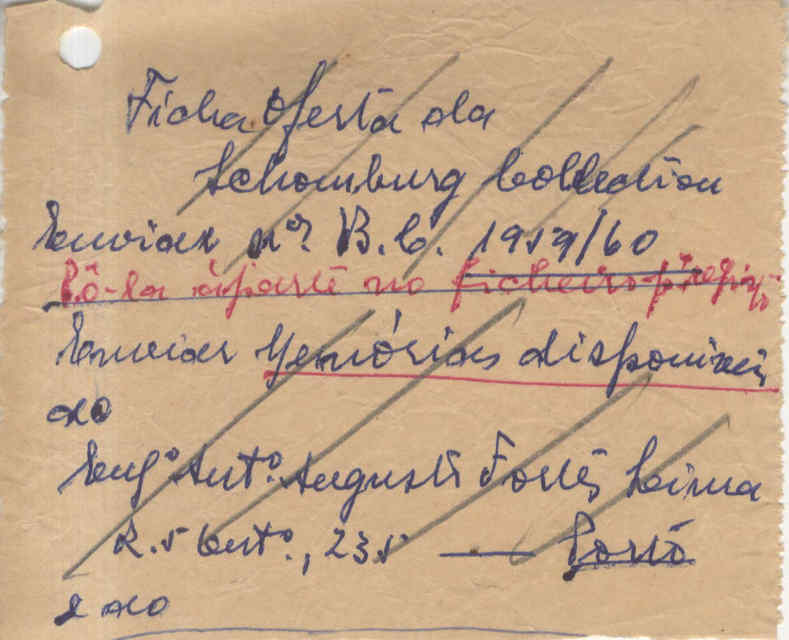 Ficha Oferta da
Schomburg Collection
Enviar nº? B.C. 1959/60
Pô-la àparte no ficheiro-
Enviar Memórias disponíveis
ao
Engº Antº. Augusto Fortes Lima
R. 5 Outº., 235 — Porto
e ao